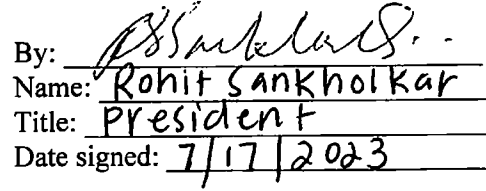 By:
Name: Rohit Sankholkar
Title: President
Date signed: 7/17/2023